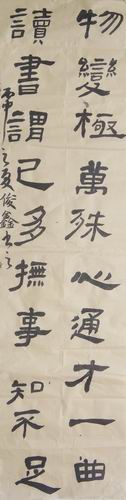 物變極萬殊心通才一曲
讀書謂已多撫事知不足
之夏俊鑫書